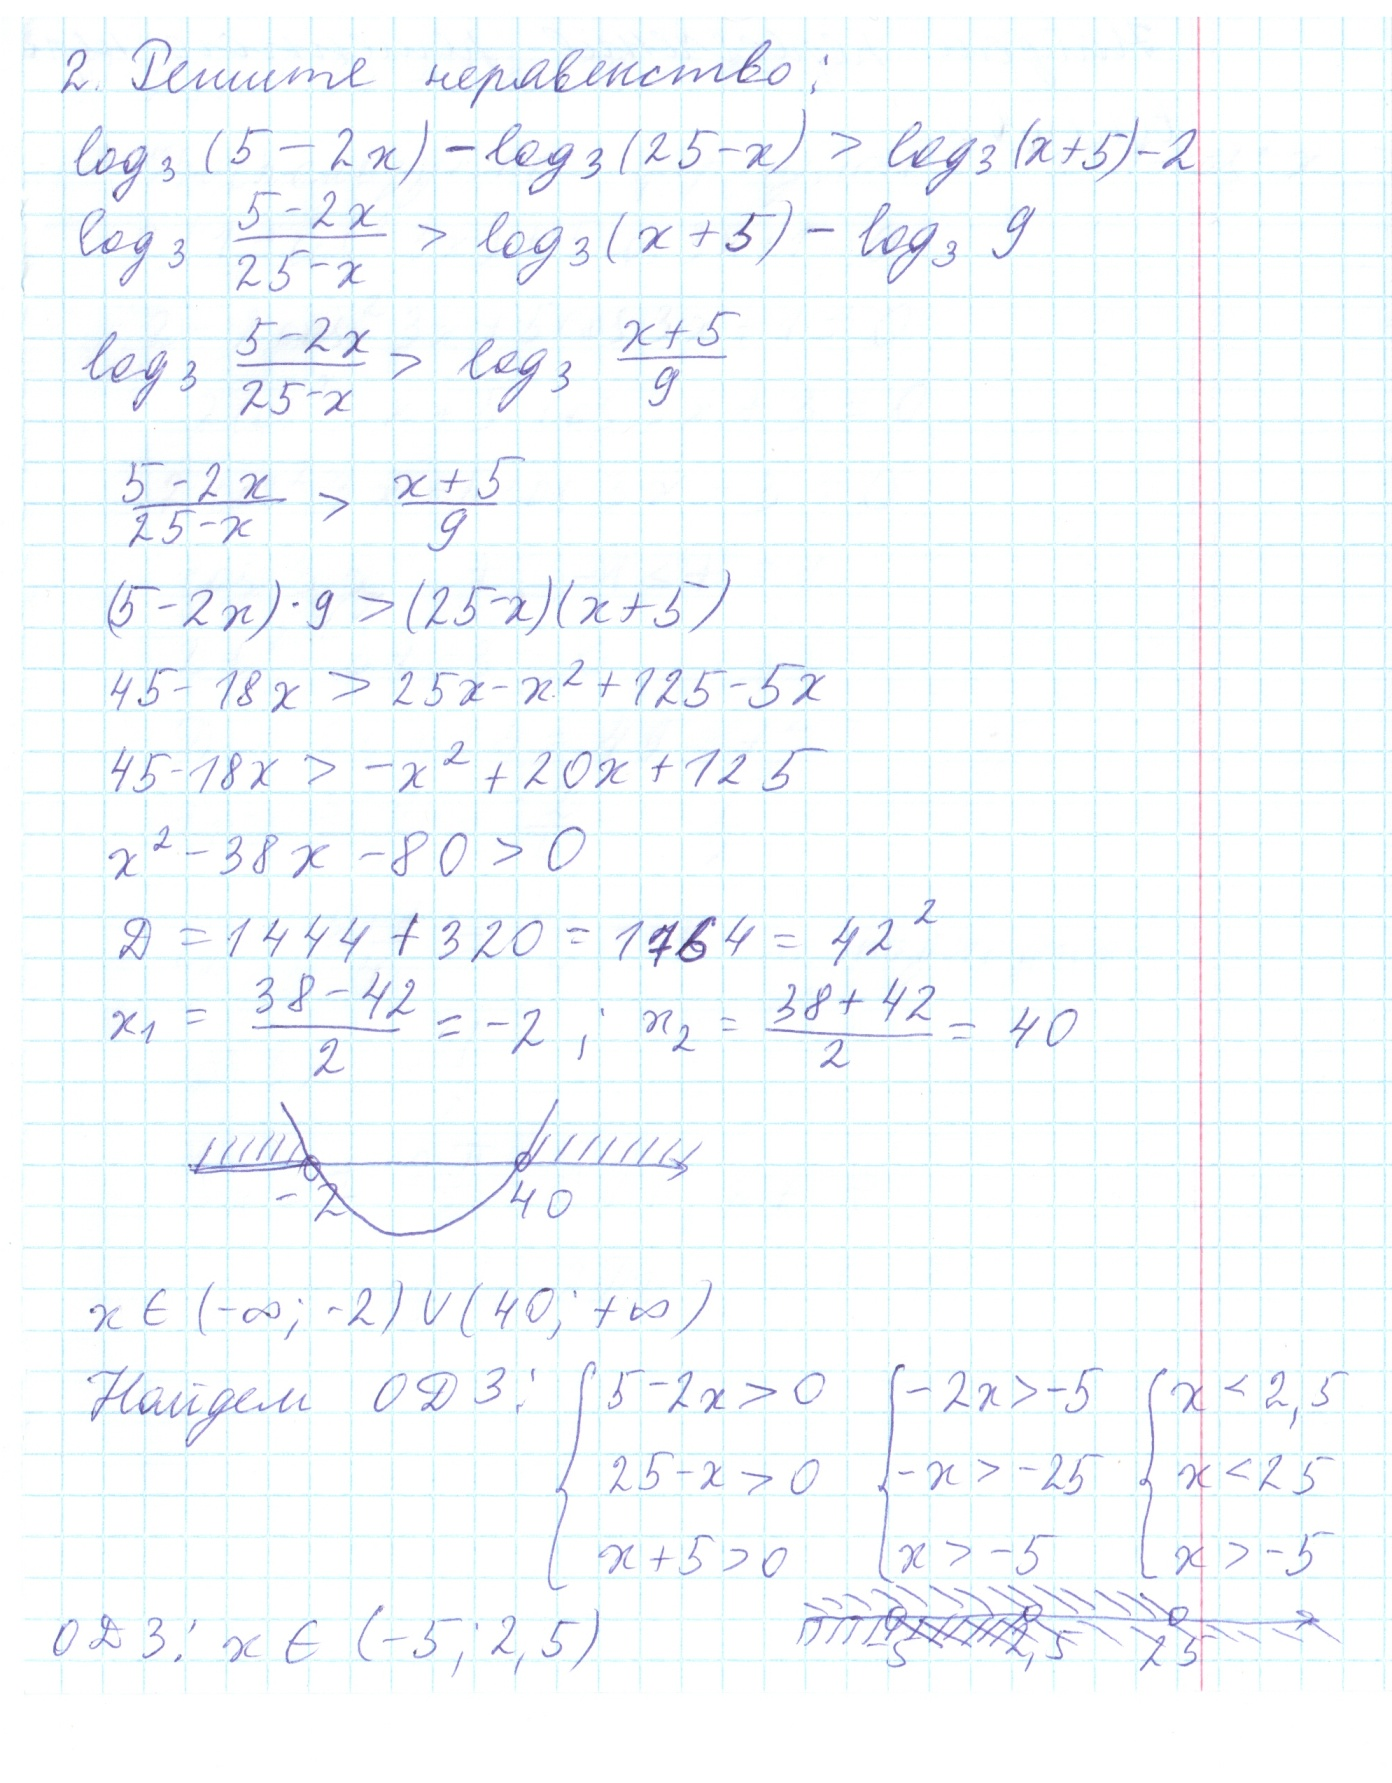 2. Решите неравенство:
log₃(5-2x)-log₃(25-x)>log₃(x+5)-2
log₃ (5-2x)/(25-x) > log₃(x+5)-log₃ 9
log₃ (5-2x)/(25-x) > log₃ (x+5)/9
(5-2x)/(25-x) > (x+5)/9
(5-2x)·9>(25-x)(x+5)
45-18x>25x-x²+125-5x
45-18x>-x²+20x+125
x²-38x-80>0
Д=1444+320=1764=42²
x₁ = (38-42)/2 = -2; x₂ = (38+42)/2 = 40
-2 40
x∈(-∞;-2)∪(40;+∞)
Найдем ОДЗ: { 5-2x>0 { -2x>-5 { x<2,5
25-x>0 -x>-25 x<25
x+5>0 x>-5 x>-5
ОДЗ: x∈(-5;2,5) -5 2,5 25